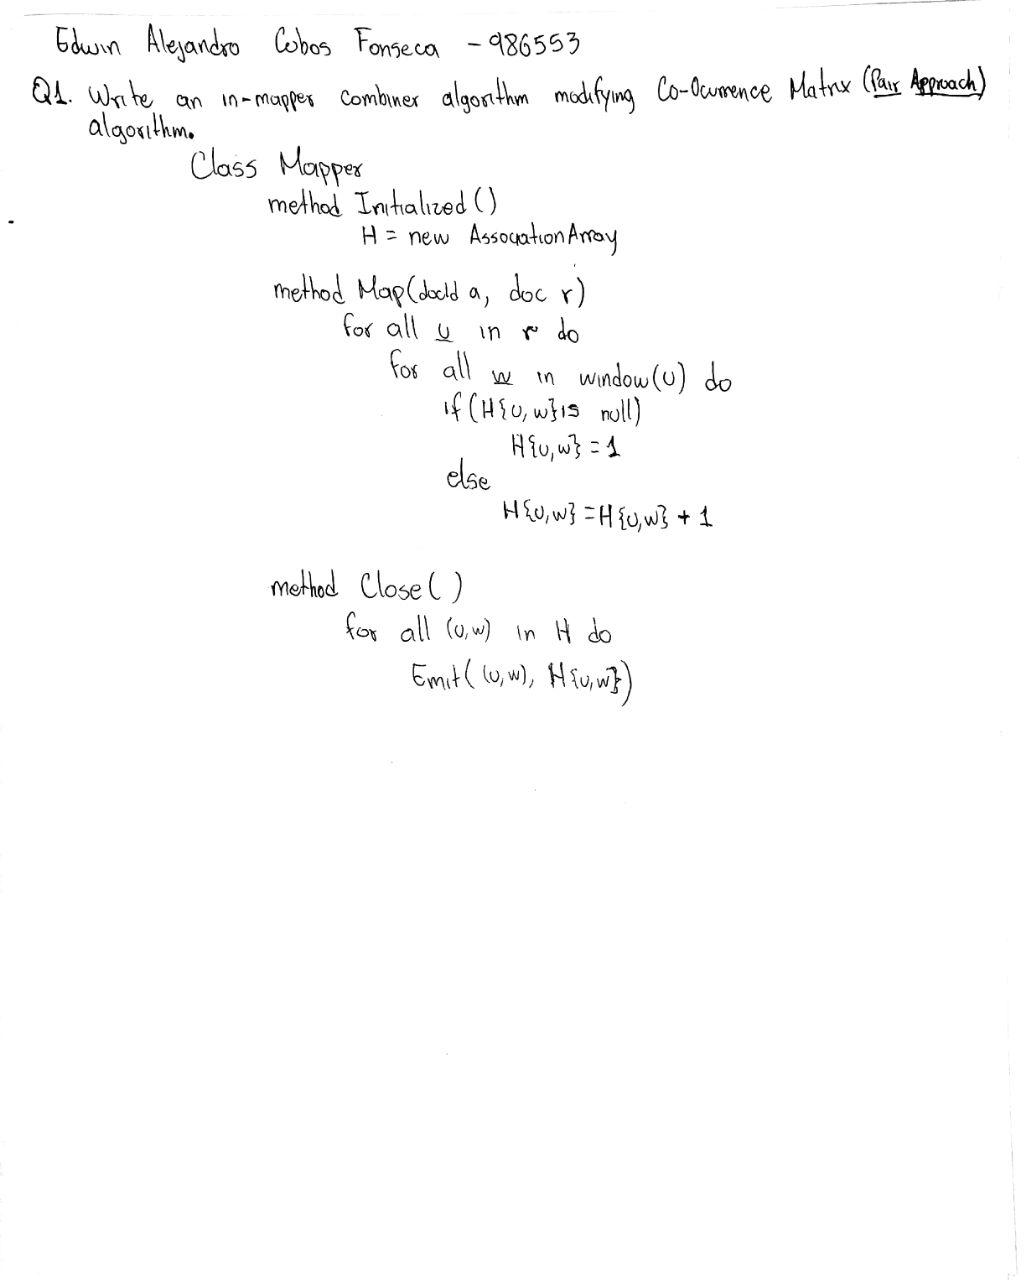 Edwin Alejandro Cobos Fonseca - 986553
Q1. Write an in-mapper combiner algorithm modifying Co-Ocurrence Matrix (Pair Approach)
algorithm.
Class Mapper
method Initialized ()
H = new AssociationArray
method Map(docId a, doc r)
for all u in r do
for all w in window(u) do
if (H{u, w} is null)
H{u,w} = 1
else
H{u,w} = H{u,w} + 1
method Close( )
for all (u,w) in H do
Emit( (u,w), H{u,w})